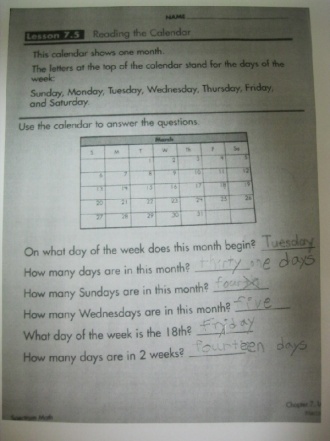 NAME
Lesson 7.5 Reading the Calendar
This calendar shows one month.
The letters at the top of the calendar stand for the days of the
week:
Sunday, Monday, Tuesday, Wednesday, Thursday, Friday,
and Saturday.
Use the calendar to answer the questions.
March
S M T W Th F Sa
1 2 3 4 5
6 7 8 9 10 11 12
13 14 15 16 17 18 19
20 21 22 23 24 25 26
27 28 29 30 31
On what day of the week does this month begin? Tuesday
How many days are in this month? thirty one days
How many Sundays are in this month?
How many Wednesdays are in this month? five
What day of the week is the 18th? Friday
How many days are in 2 weeks? fourteen days
Spectrum Math
Chapter 7,